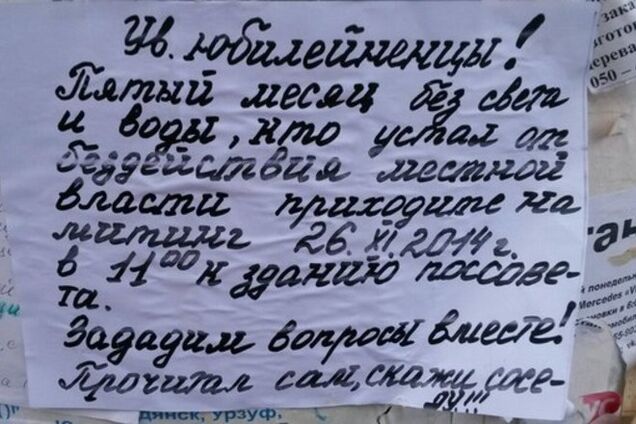 Ув. юбилейненцы!
Пятый месяц без света
и воды, кто устал от
бездействия местной
власти приходите на
митинг 26.XI.2014 г.
в 11⁰⁰ к зданию поссове-
та.
Зададим вопросы вместе!
Прочитал сам, скажи сосе-
ду!!!
050 -
Mercedes «V
янск, Урзуф,